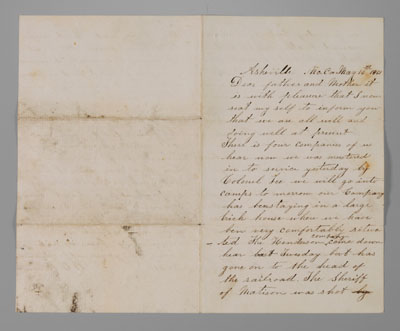 Asheville No. Ca May 16th 1861
Dear father and Mother it
is with pleasure that I now
seat my self to inform you
that we are all well and
doing well at present
There is four companies of us
hear now we was mustered
in to service yesterday by
Colonel we will go into
camps to morrow our Company
has been staying in a large
brick house where we have
ben very comfortably
The Henderson company come down
hear last Tuesday but has
gone on to the head of
the railroad. The Sheriff
of Matison was shot by